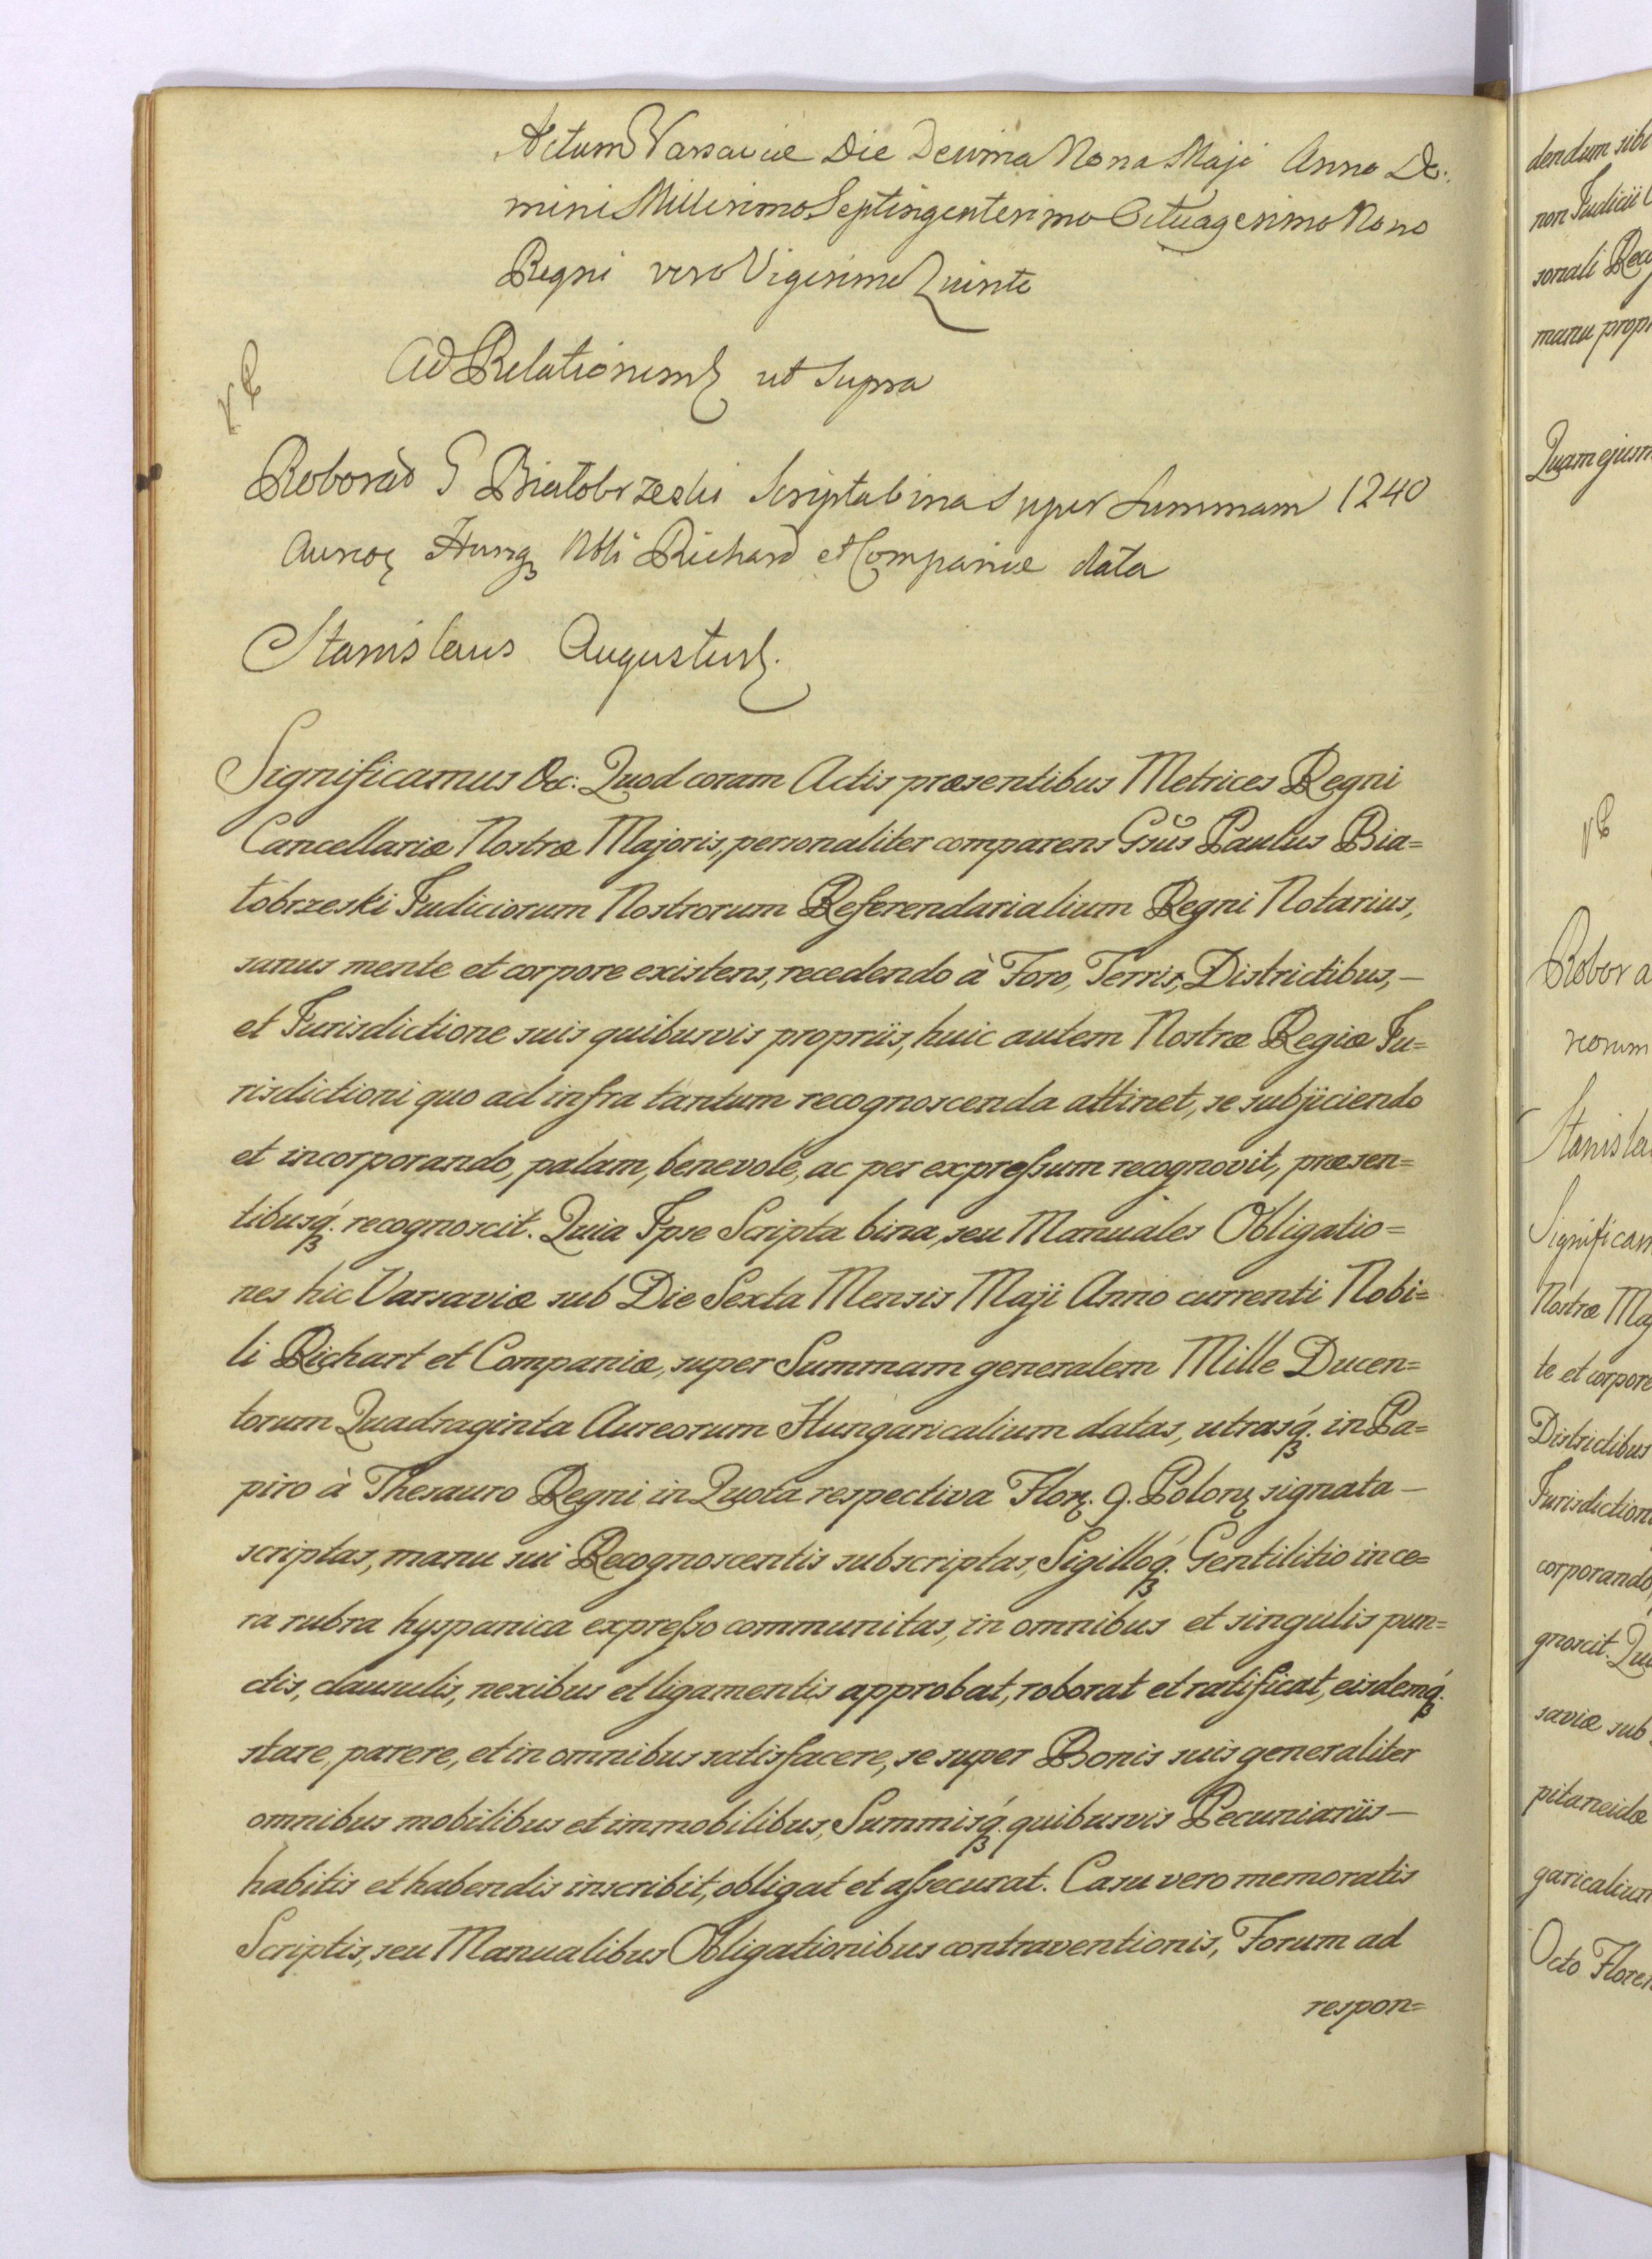 Actum Varsaviæ Die Decima Nona Maji Anno Do:
mini Millesimo Septingentesimo Octuagesimo Nono
Regni vero Vigesimo Quinto
Ad Relationem ut supra
Roborao G Białobrzeski Scripta bina super Summam 1240
Aureoꝝ Hungꝫ Nbli Richard et Companiæ data
Stanislaus Augustus.
Significamus &c: Quod coram Actis præsentibus Metrices Regni
Cancellariæ Nostræ Majoris, personaliter comparens Gsus Paulus Bia=
łobrzeski Judiciorum Nostrorum Referendarialium Regni Notarius,
sanus mente et corpore existens, recedendo à Foro, Terris, Districtibus, —
et Jurisdictione suis quibusvis propriis, huic autem Nostræ Regiæ Ju=
risdictioni quo ad infra tantum recognoscenda attinet, se subjiciendo
et incorporando, palam, benevole, ac per expreſsum recognovit, præsen=
tibusqꝫ recognoscit. Quia Ipse Scripta bina, seu Manuales Obligatio=
nes hic Varsaviæ sub Die Sexta Mensis Maji Anno currenti Nobi=
li Richart et Companiæ, super Summam generalem Mille Ducen=
torum Quadraginta Aureorum Hungaricalium datas, utrasqꝫ in Pa=
piro à Thesauro Regni in Quota respectiva Floꝝ. 9. Polonꝝ signata —
scriptas, manu sui Recognoscentis subscriptas, Sigilloqꝫ Gentilitio in ce=
ra rubra hyspanica expreſso communitas, in omnibus et singulis pun=
ctis, clausulis, nexibus et ligamentis approbat, roborat et ratificat, eisdemqꝫ
stare, parere, et in omnibus satisfacere, se super Bonis suis generaliter
omnibus mobilibus et immobilibus, Summisqꝫ quibusvis Pecuniariis —
habitis et habendis inscribit, obligat et aſsecurat. Casu vero memoratis
Scriptis, seu Manualibus Obligationibus contraventionis, Forum ad
respon=
dendum sibi
non Judicii
sonali
manu propr
Quam ejusm
Robora
reorum
Stanisla
Significam
Nostræ Maj
te et corpore
Districtibus
Jurisdiction
corporando,
gnoscit. Qui
saviæ sub
pitaneidæ
garicalium
Octo Floren